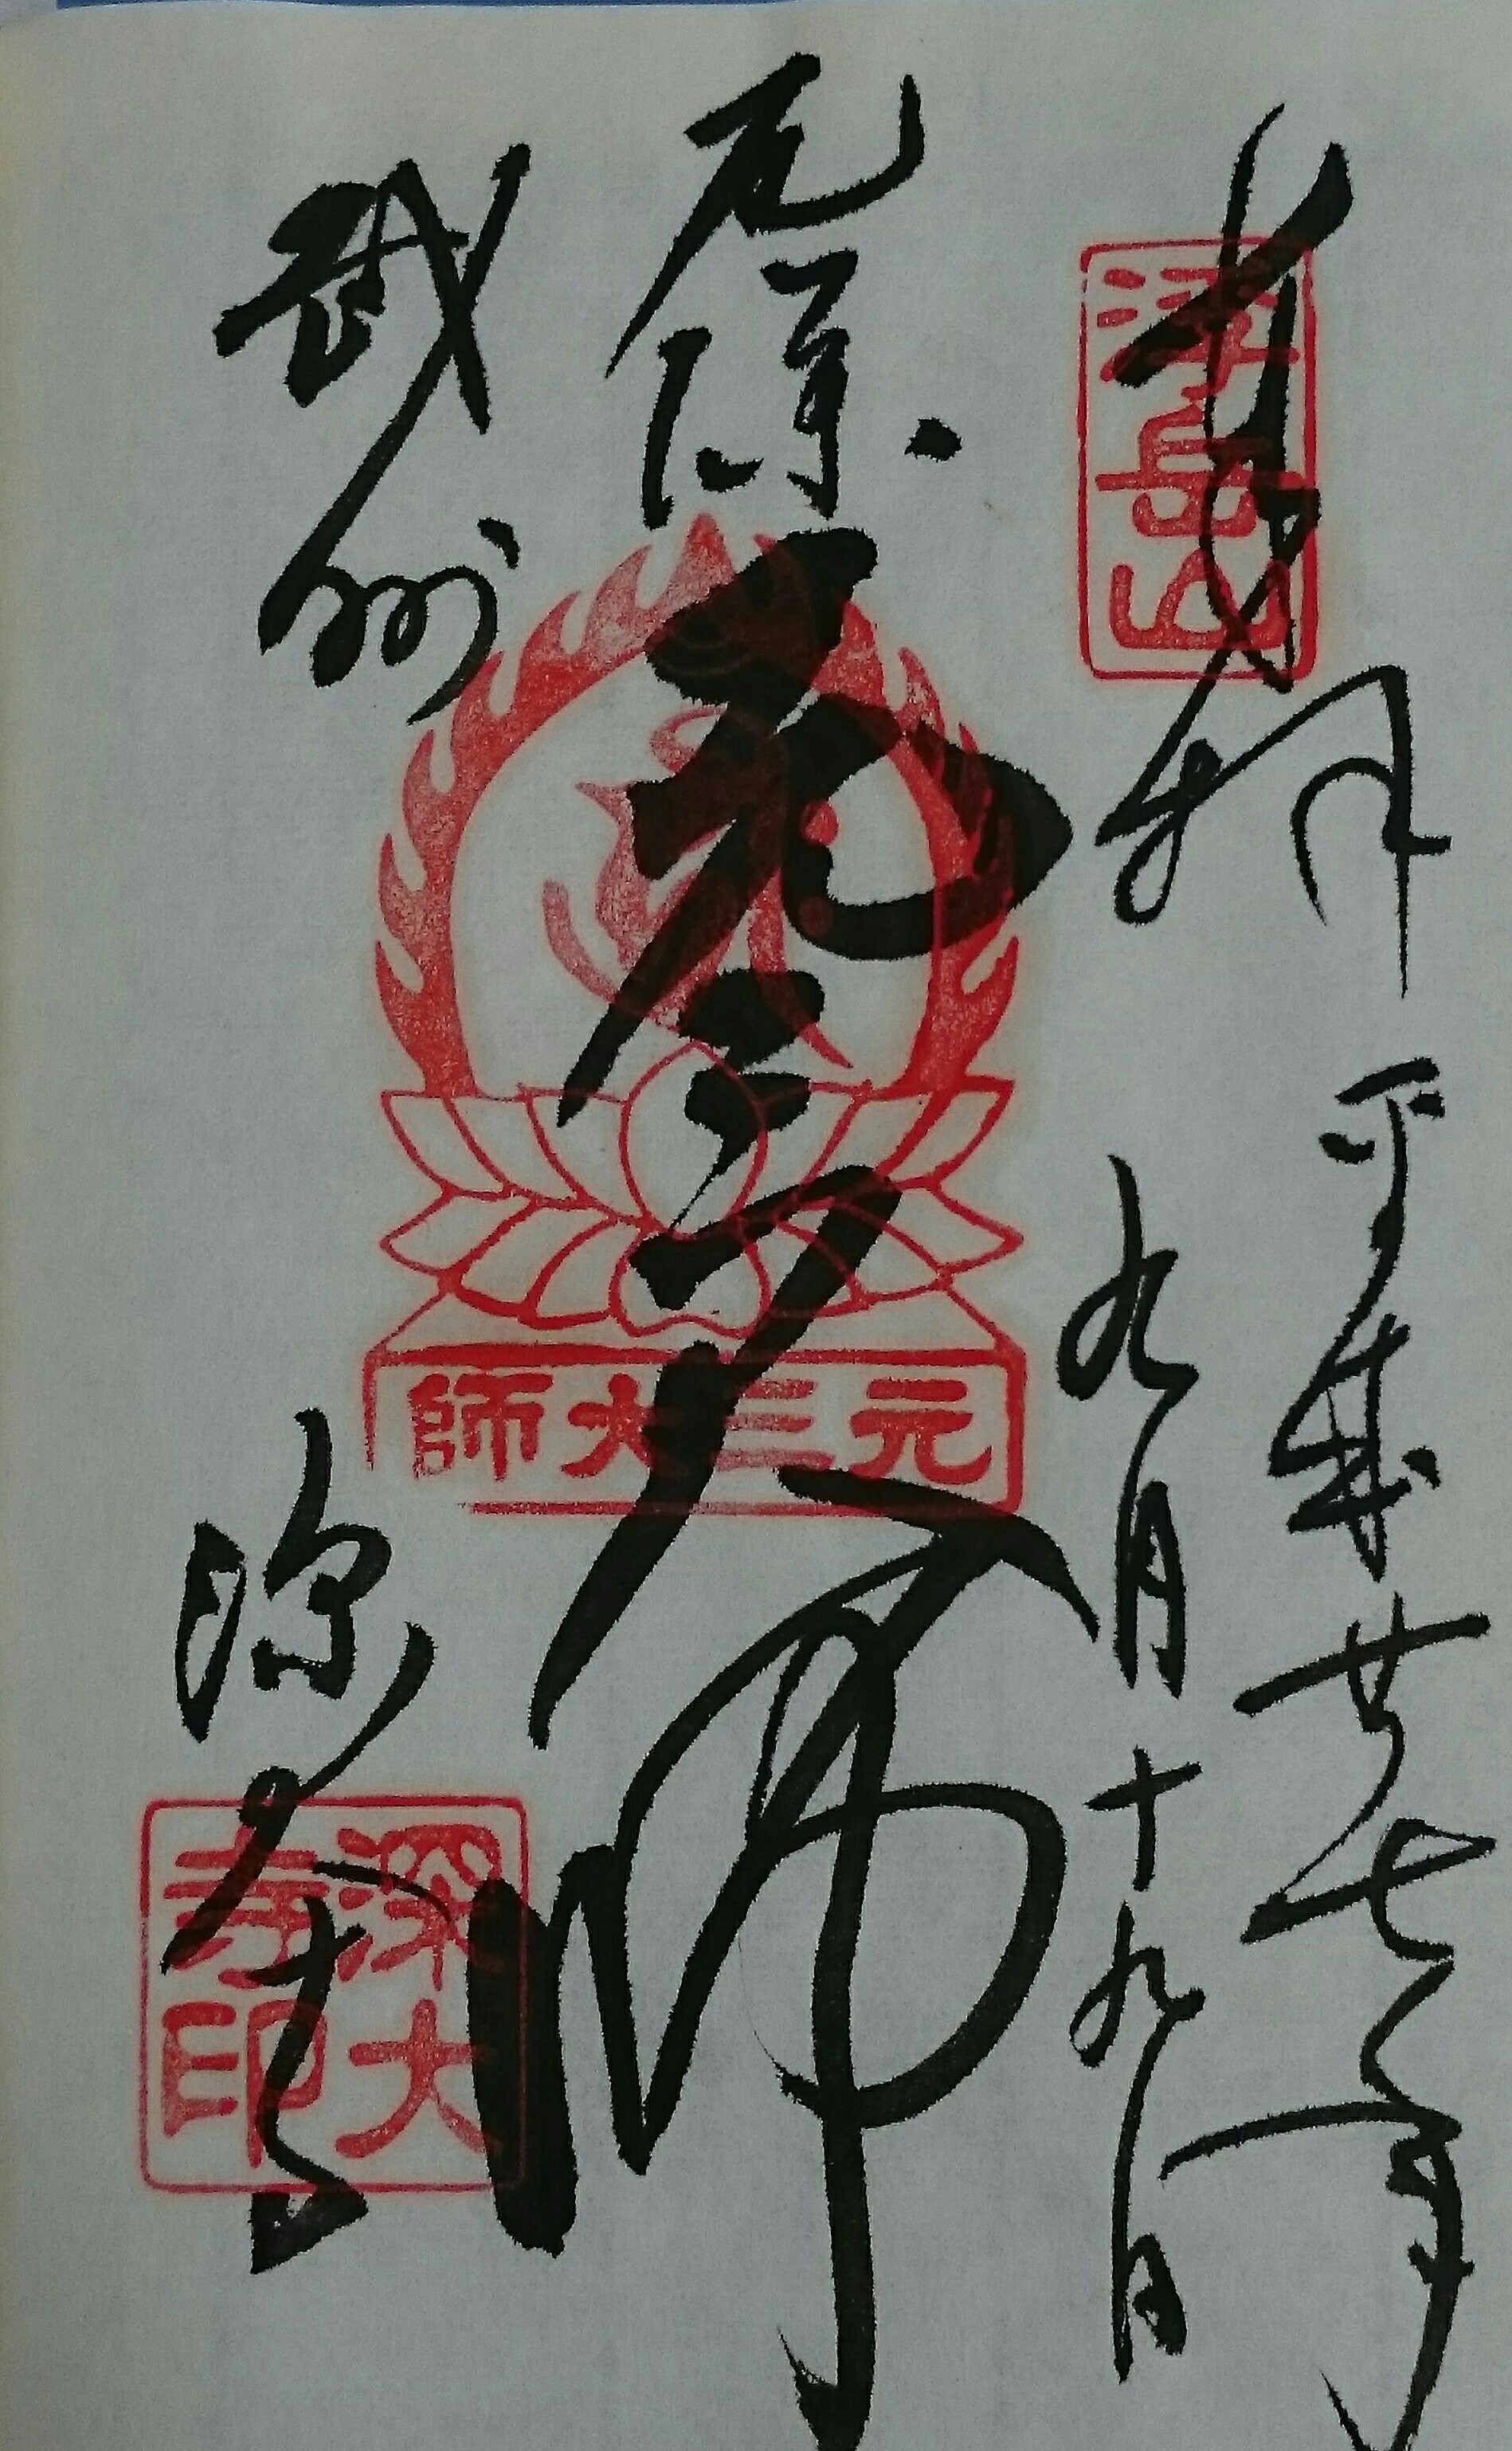 奉拝
平成廿七年
九月十九日
浮岳山
厄除
元三大師
師大三元
武州
深大寺
深大寺印